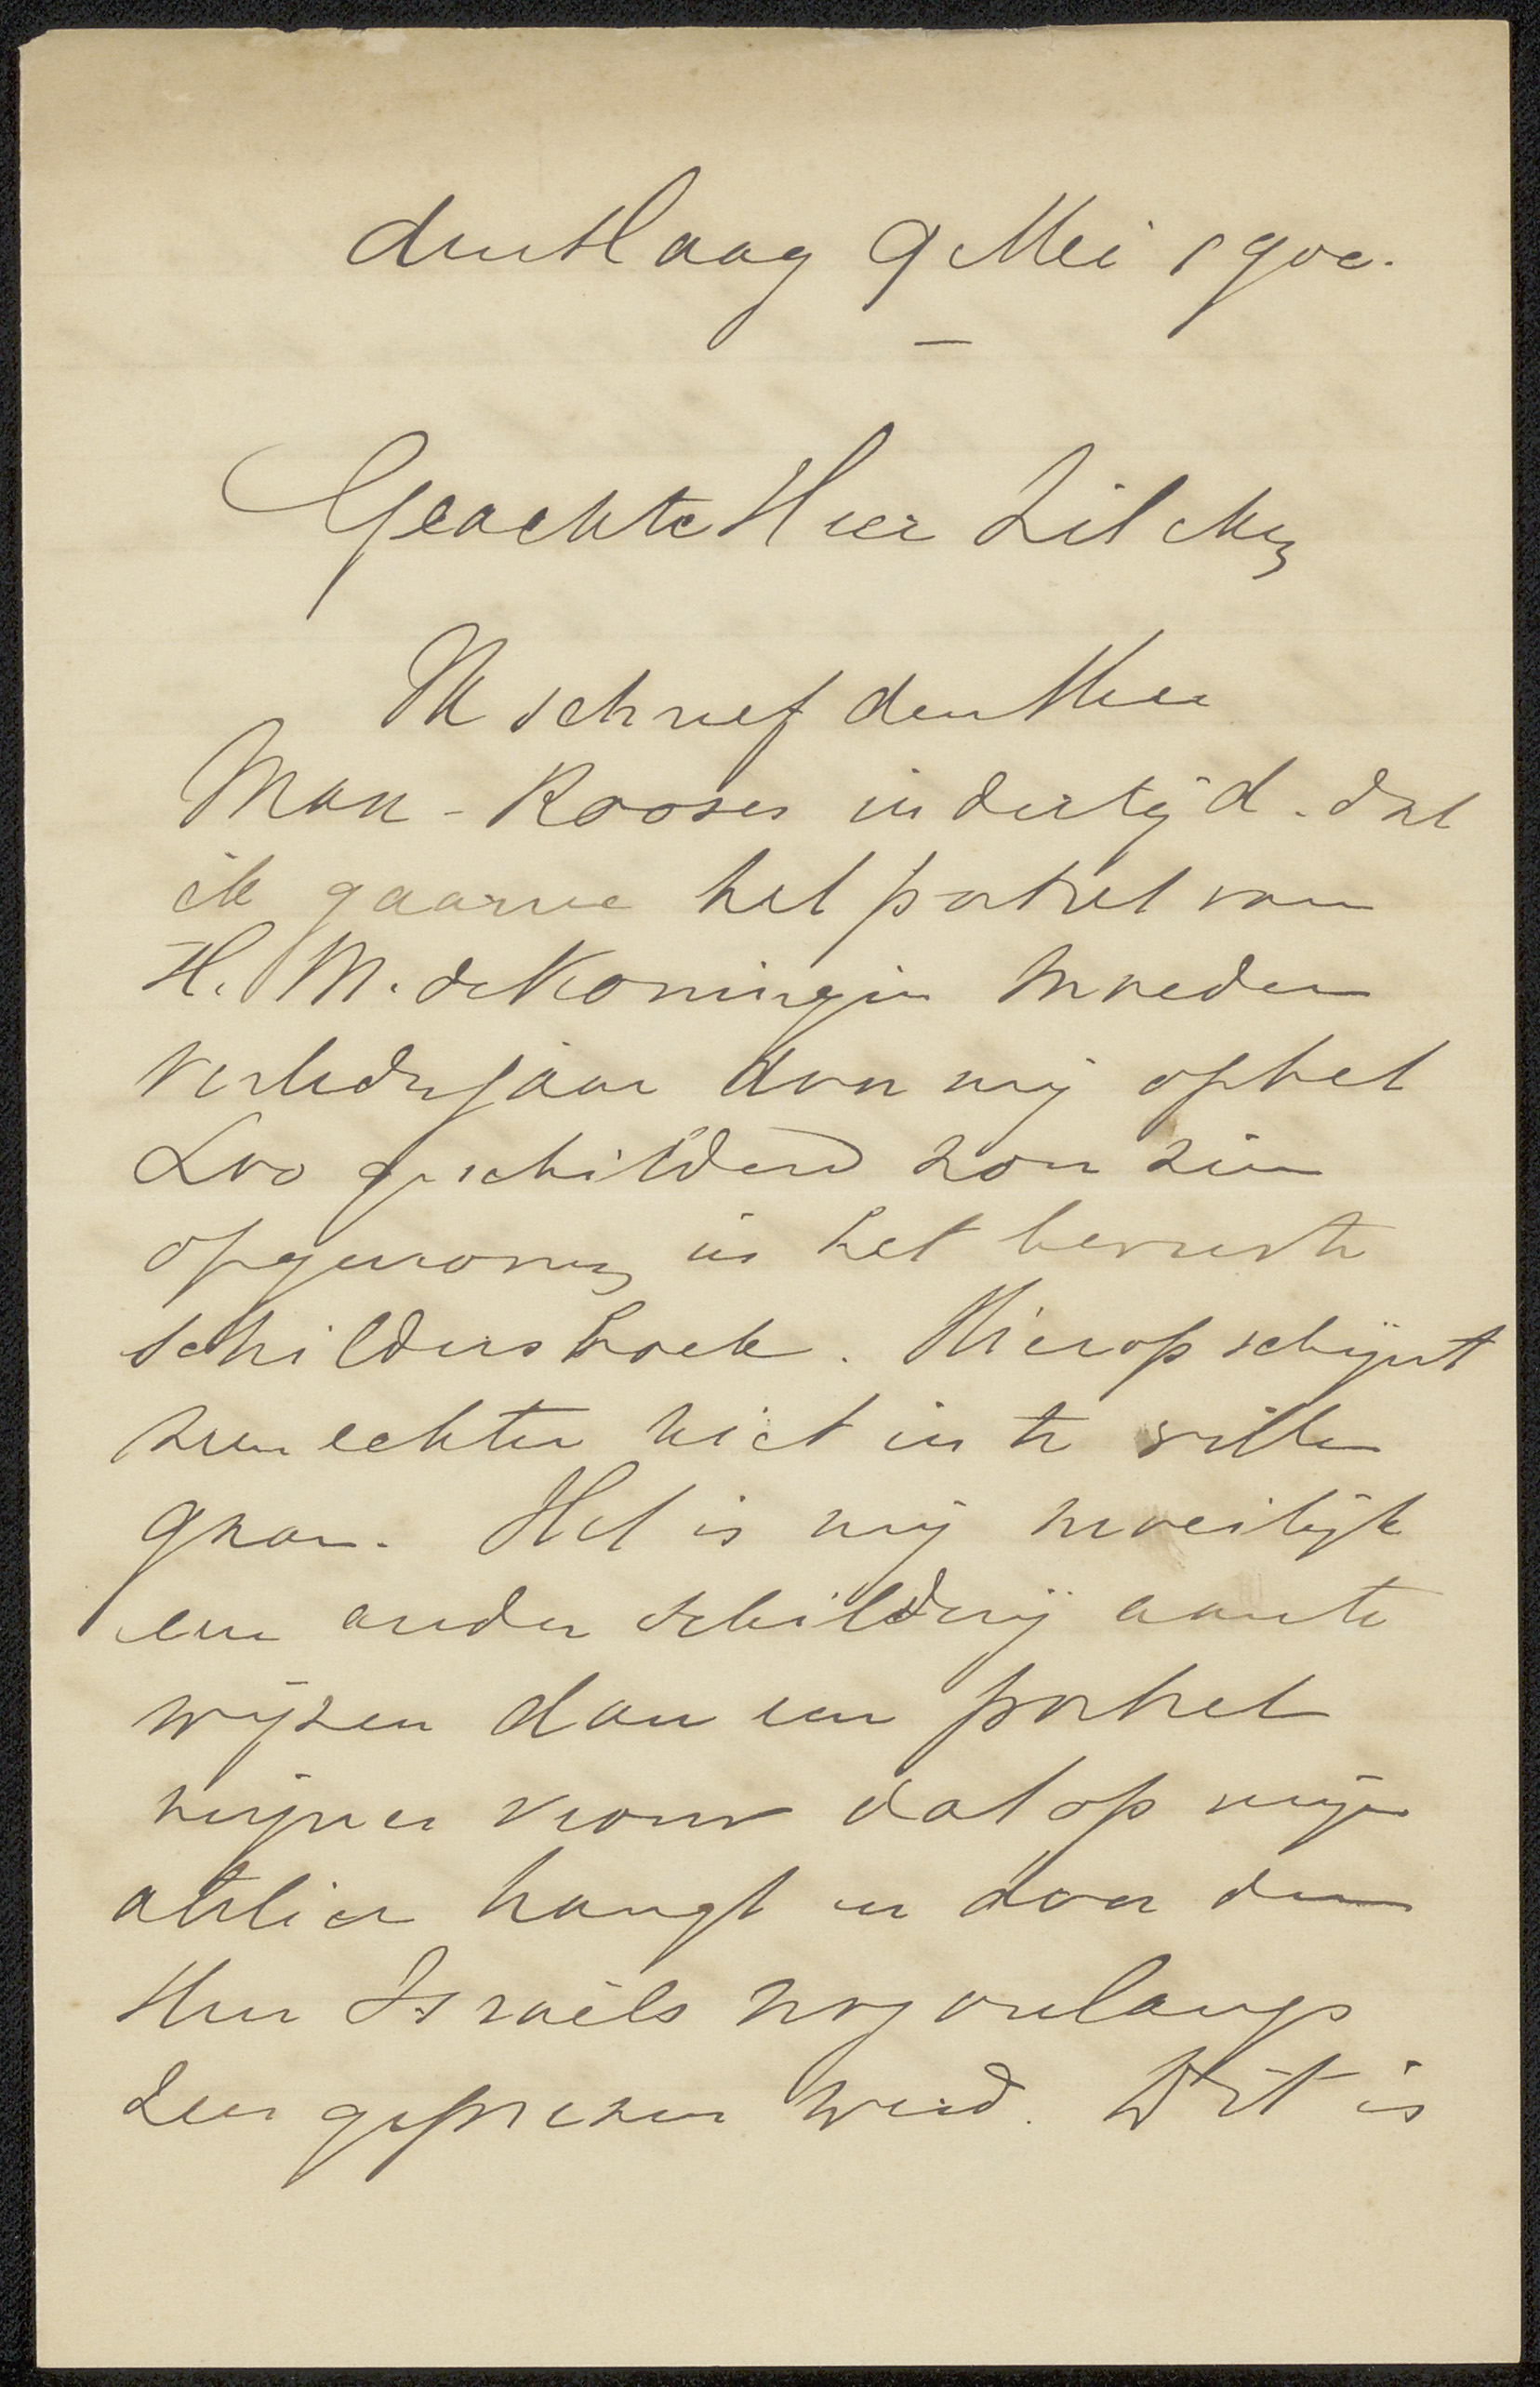 den Haag 9 Mei 1900.
Geachte Heer Zilcken
Ik schreef den Heer
Max-Rooses indertijd. dat
ik gaarne het portret van
H. M. de Koningin Moeder
verleden jaar door mij op het
Loo geschilderd zou zien
opgenomen in het bewuste
schildersboek. Hierop schijnt
men echter niet in te willen
gaan. Het is mij moeilijk
een ander schilderij aan te
wijzen dan een portret
mijner vrouw dat op mijn
atelier hangt en door den
Heer Israëls nog onlangs
zeer geprezen werd. Dit is